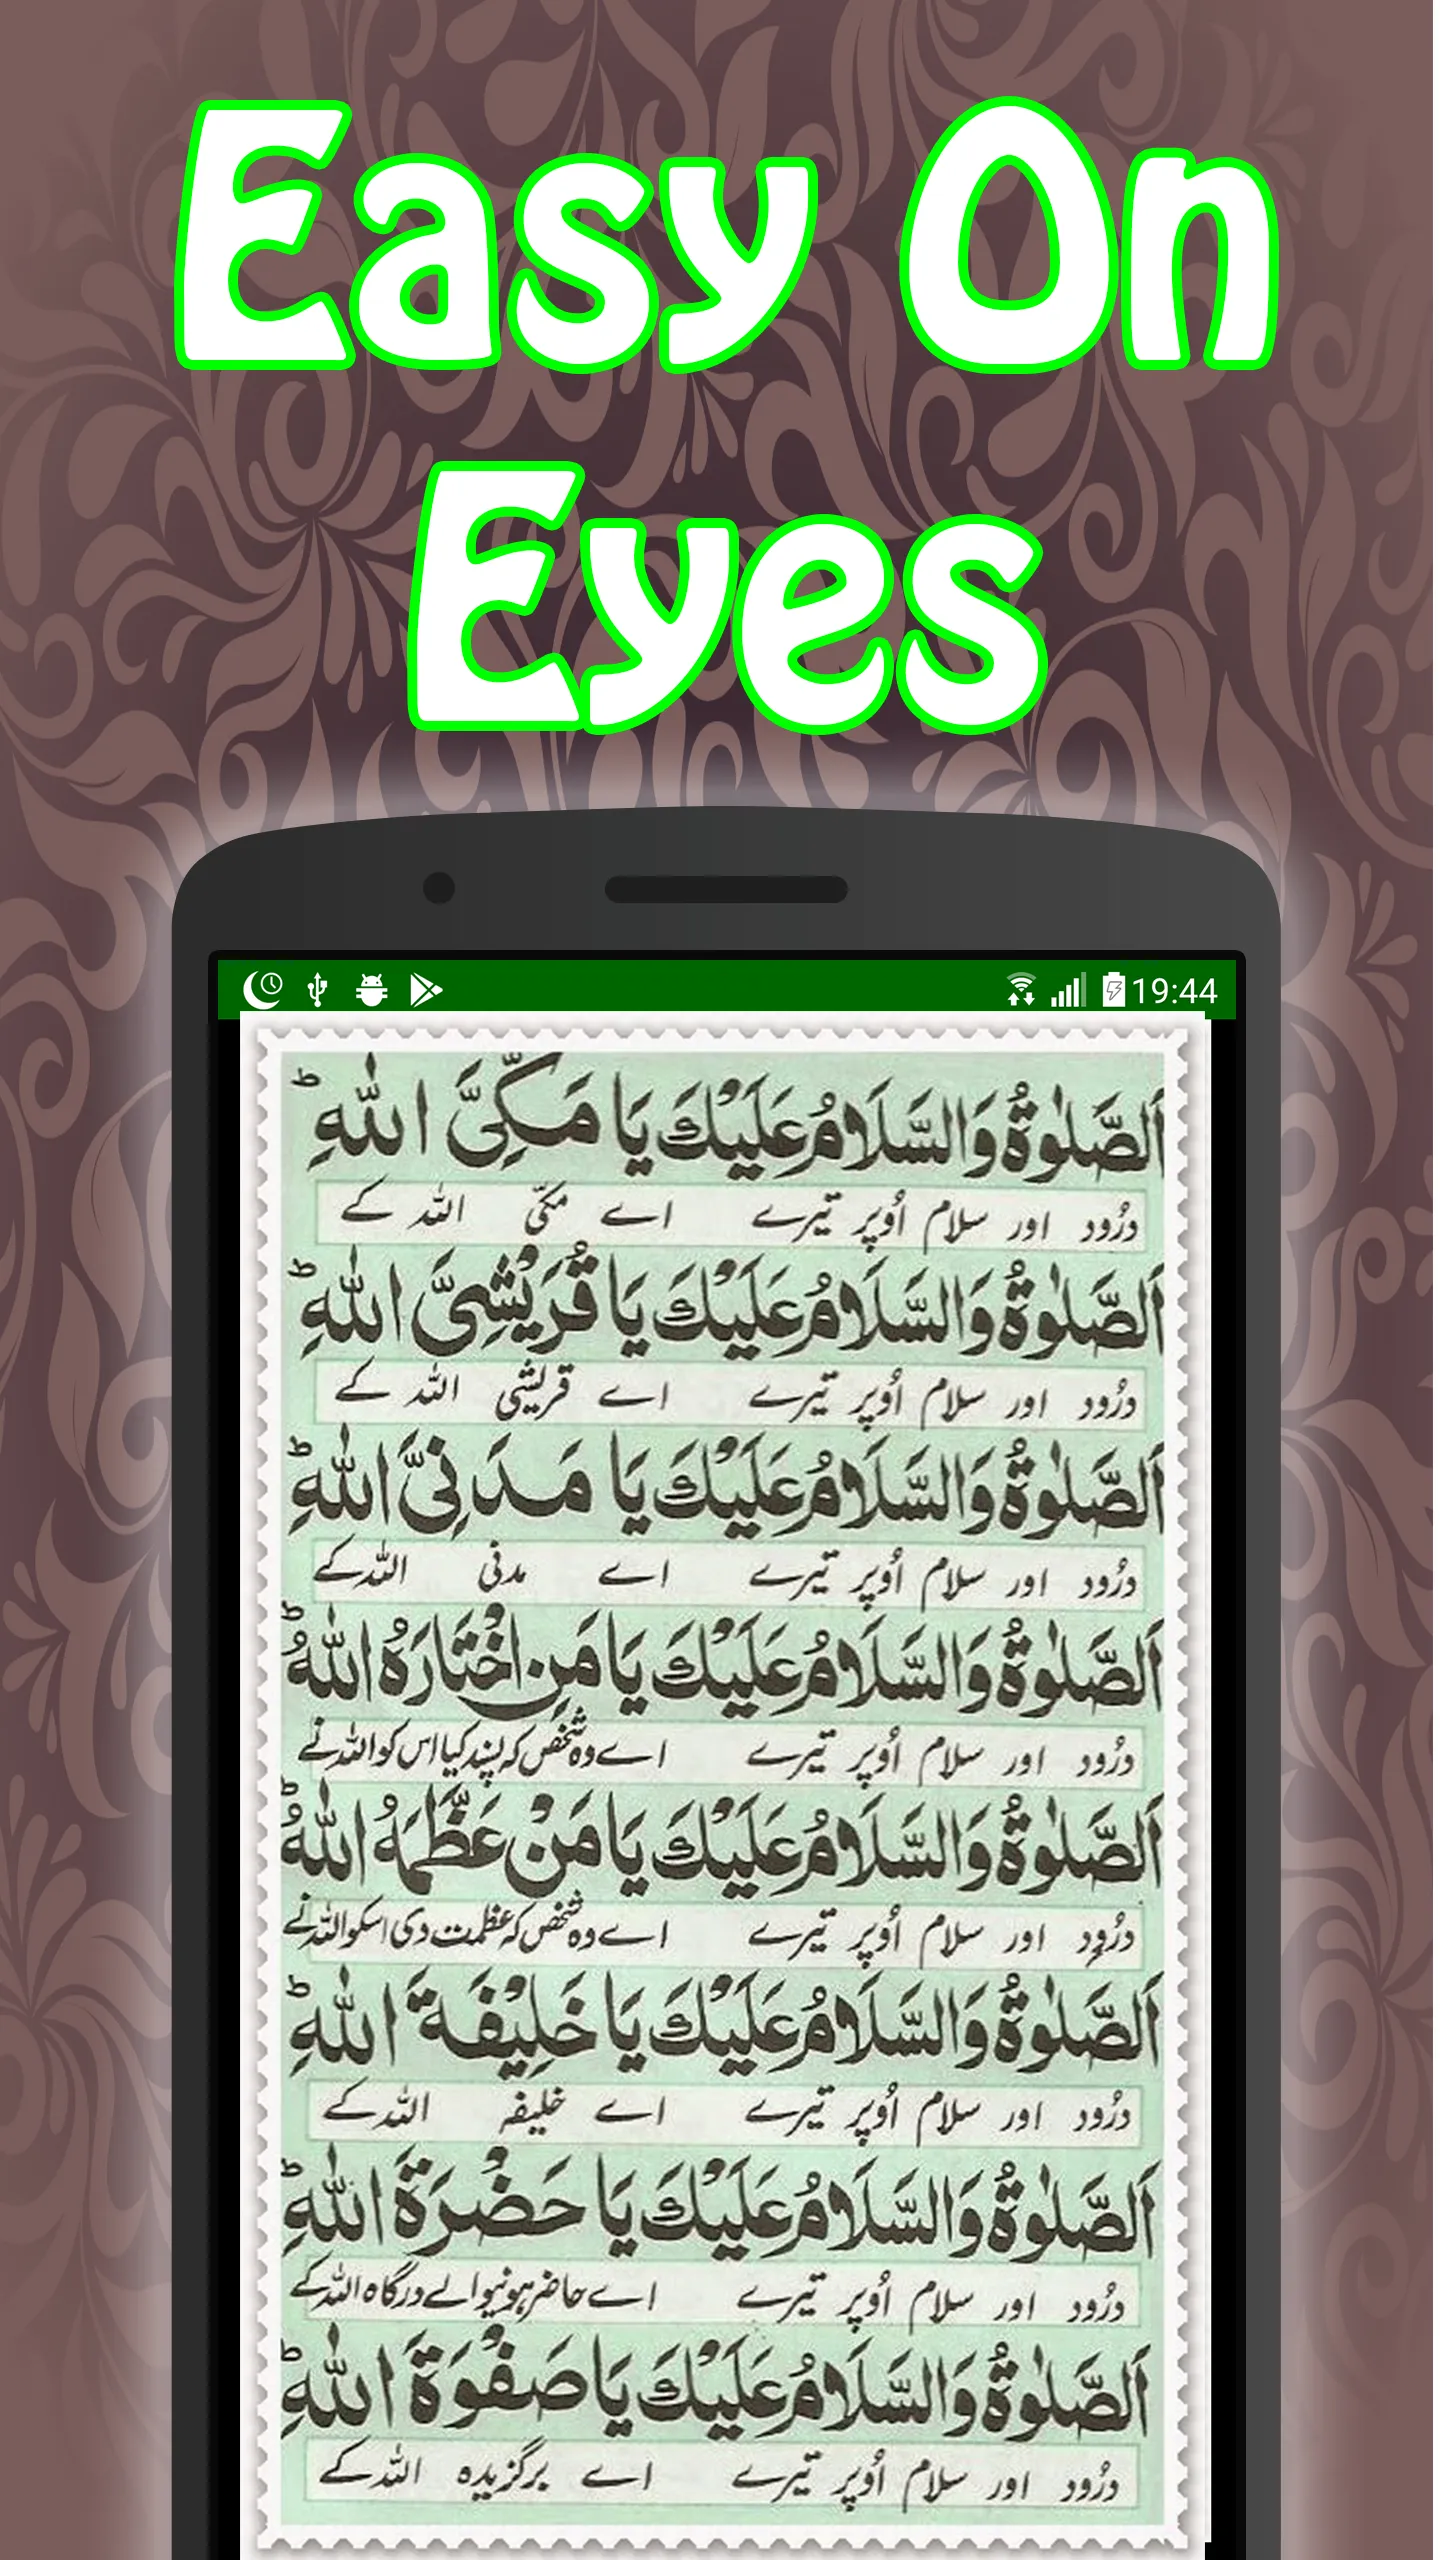 Easy On
Eyes
19:44
اَلصَّلٰوةُ وَالسَّلَامُ عَلَيْكَ يَا مَكِّيَّ اللهِ ؕ
درُود اور سلام اُوپر تیرے اے مکیّ اللہ کے
اَلصَّلٰوةُ وَالسَّلَامُ عَلَيْكَ يَا قُرَيْشِيَّ اللهِ ؕ
درُود اور سلام اُوپر تیرے اے قریشی اللہ کے
اَلصَّلٰوةُ وَالسَّلَامُ عَلَيْكَ يَا مَدَنِيَّ اللهِ ؕ
درُود اور سلام اُوپر تیرے اے مدنی اللہ کے
اَلصَّلٰوةُ وَالسَّلَامُ عَلَيْكَ يَا مَنِ اخْتَارَهُ اللهُ ؕ
درُود اور سلام اُوپر تیرے اے وہ شخص کہ پسند کیا اس کو اللہ نے
اَلصَّلٰوةُ وَالسَّلَامُ عَلَيْكَ يَا مَنْ عَظَّمَهُ اللهُ ؕ
درُود اور سلام اُوپر تیرے اے وہ شخص کہ عظمت دی اسکو اللہ نے
اَلصَّلٰوةُ وَالسَّلَامُ عَلَيْكَ يَا خَلِيْفَةَ اللهِ ؕ
درُود اور سلام اُوپر تیرے اے خلیفہ اللہ کے
اَلصَّلٰوةُ وَالسَّلَامُ عَلَيْكَ يَا حَضْرَةَ اللهِ ؕ
درُود اور سلام اُوپر تیرے اے حاضر ہونیوالے درگاہ اللہ کے
اَلصَّلٰوةُ وَالسَّلَامُ عَلَيْكَ يَا صَفْوَةَ اللهِ ؕ
درُود اور سلام اُوپر تیرے اے برگزیدہ اللہ کے